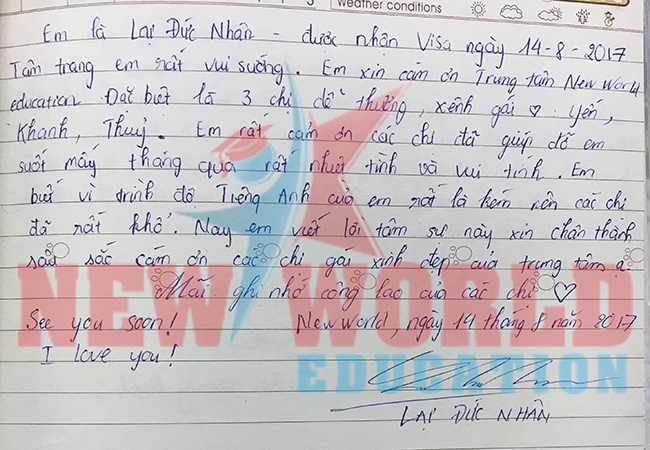 Weather conditions
Em là Lại Đức Nhân - được nhận Visa ngày 14-8-2017
Tâm trạng em rất vui sướng. Em xin cám ơn Trung tâm New World
education. Đặc biệt là 3 chị dễ thương, xênh gái ♡ : Yến,
Khanh, Thuỷ. Em rất cảm ơn các chị đã giúp đỡ em
suốt mấy tháng qua rất nhiệt tình và vui tính. Em
biết vì trình độ Tiếng Anh của em rất là kém nên các chị
đã rất khổ. Nay em viết lời tâm sự này xin chân thành
sâu sắc cám ơn các chị gái xinh đẹp của trung tâm ạ.
Mãi ghi nhớ công lao của các chị ♡
See you soon! New World, ngày 14 tháng 8 năm 2017
I love you!
LẠI ĐỨC NHÂN
NEW WORLD
EDUCATION